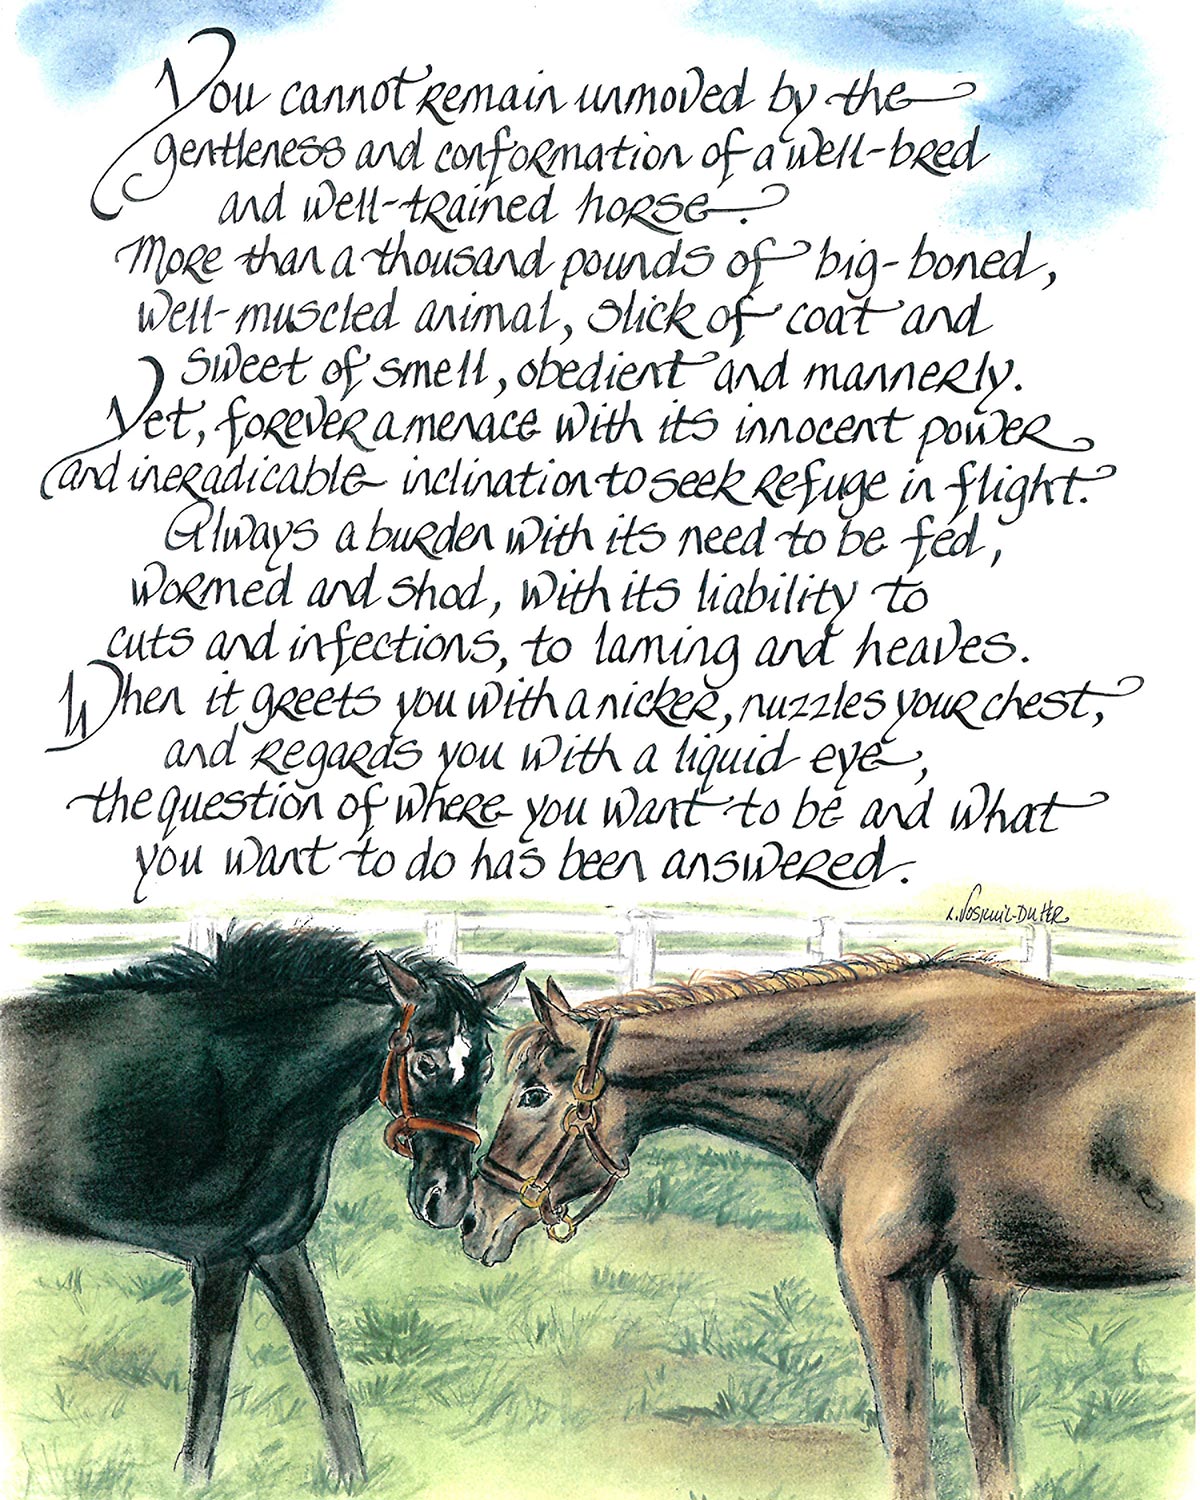 You cannot remain unmoved by the
gentleness and conformation of a well-bred
and well-trained horse.
More than a thousand pounds of big-boned,
well-muscled animal, slick of coat and
sweet of smell, obedient and mannerly.
Yet, forever a menace with its innocent power
and ineradicable inclination to seek refuge in flight.
Always a burden with its need to be fed,
wormed and shod, with its liability to
cuts and infections, to laming and heaves.
When it greets you with a nicker, nuzzles your chest,
and regards you with a liquid eye,
the question of where you want to be and what
you want to do has been answered.